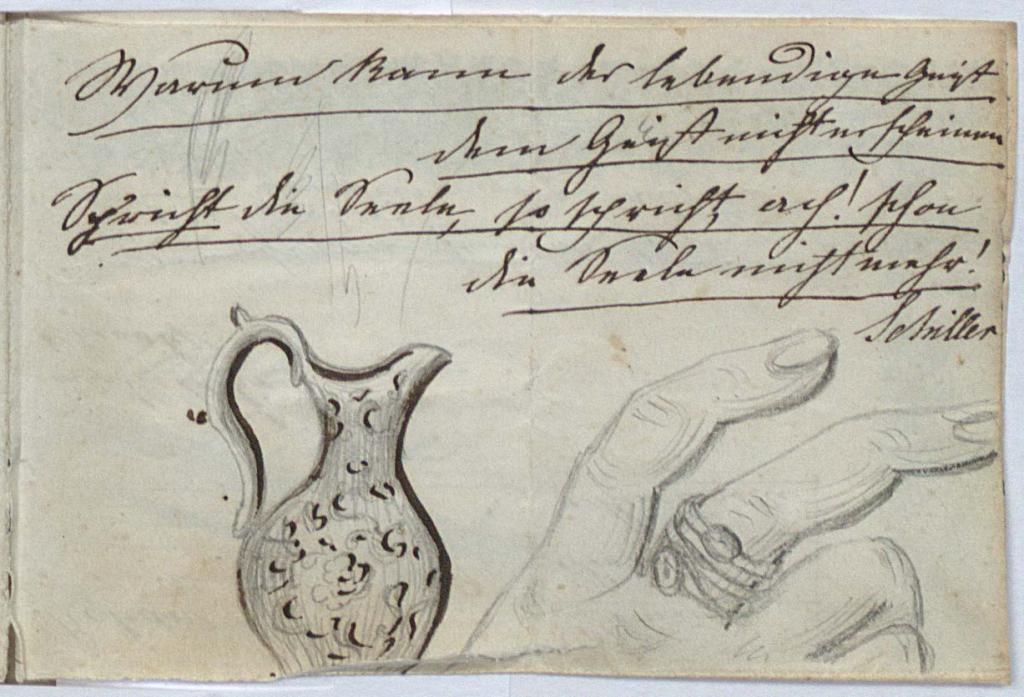 Warum kann der lebendige Geist
dem Geist nicht erscheinen
Spricht die Seele, so spricht, ach! schon
die Seele nicht mehr!
Schiller